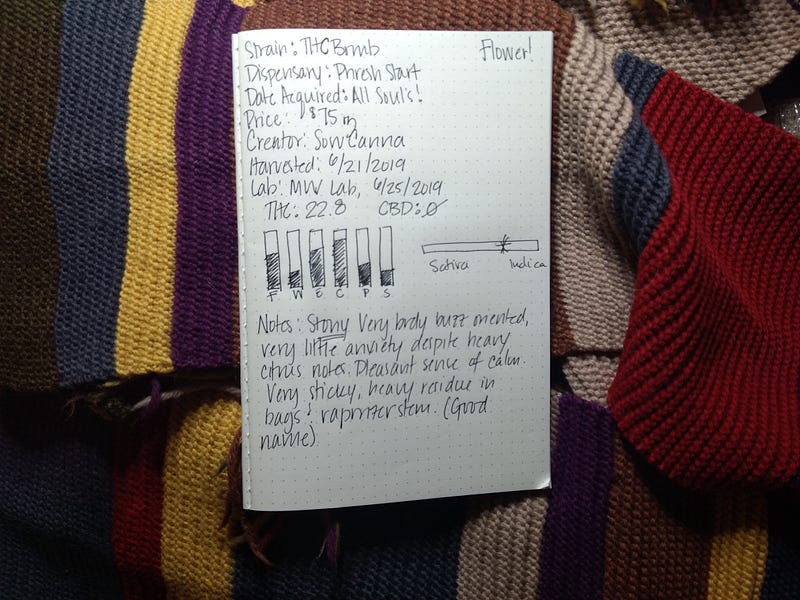 Strain: THC Bomb Flower!
Dispensary: Phresh Start
Date Acquired: All Soul's!
Price: $75
Creator: Sow Canna
Harvested: 6/21/2019
Lab: MW Lab, 6/25/2019
THC: 22.8 CBD: 0
F W E C P S
Sativa Indica
Notes: Stony Very body buzz oriented,
very little anxiety despite heavy
citrus notes. Pleasant sense of calm.
Very sticky, heavy residue in
bags! (Good
name)